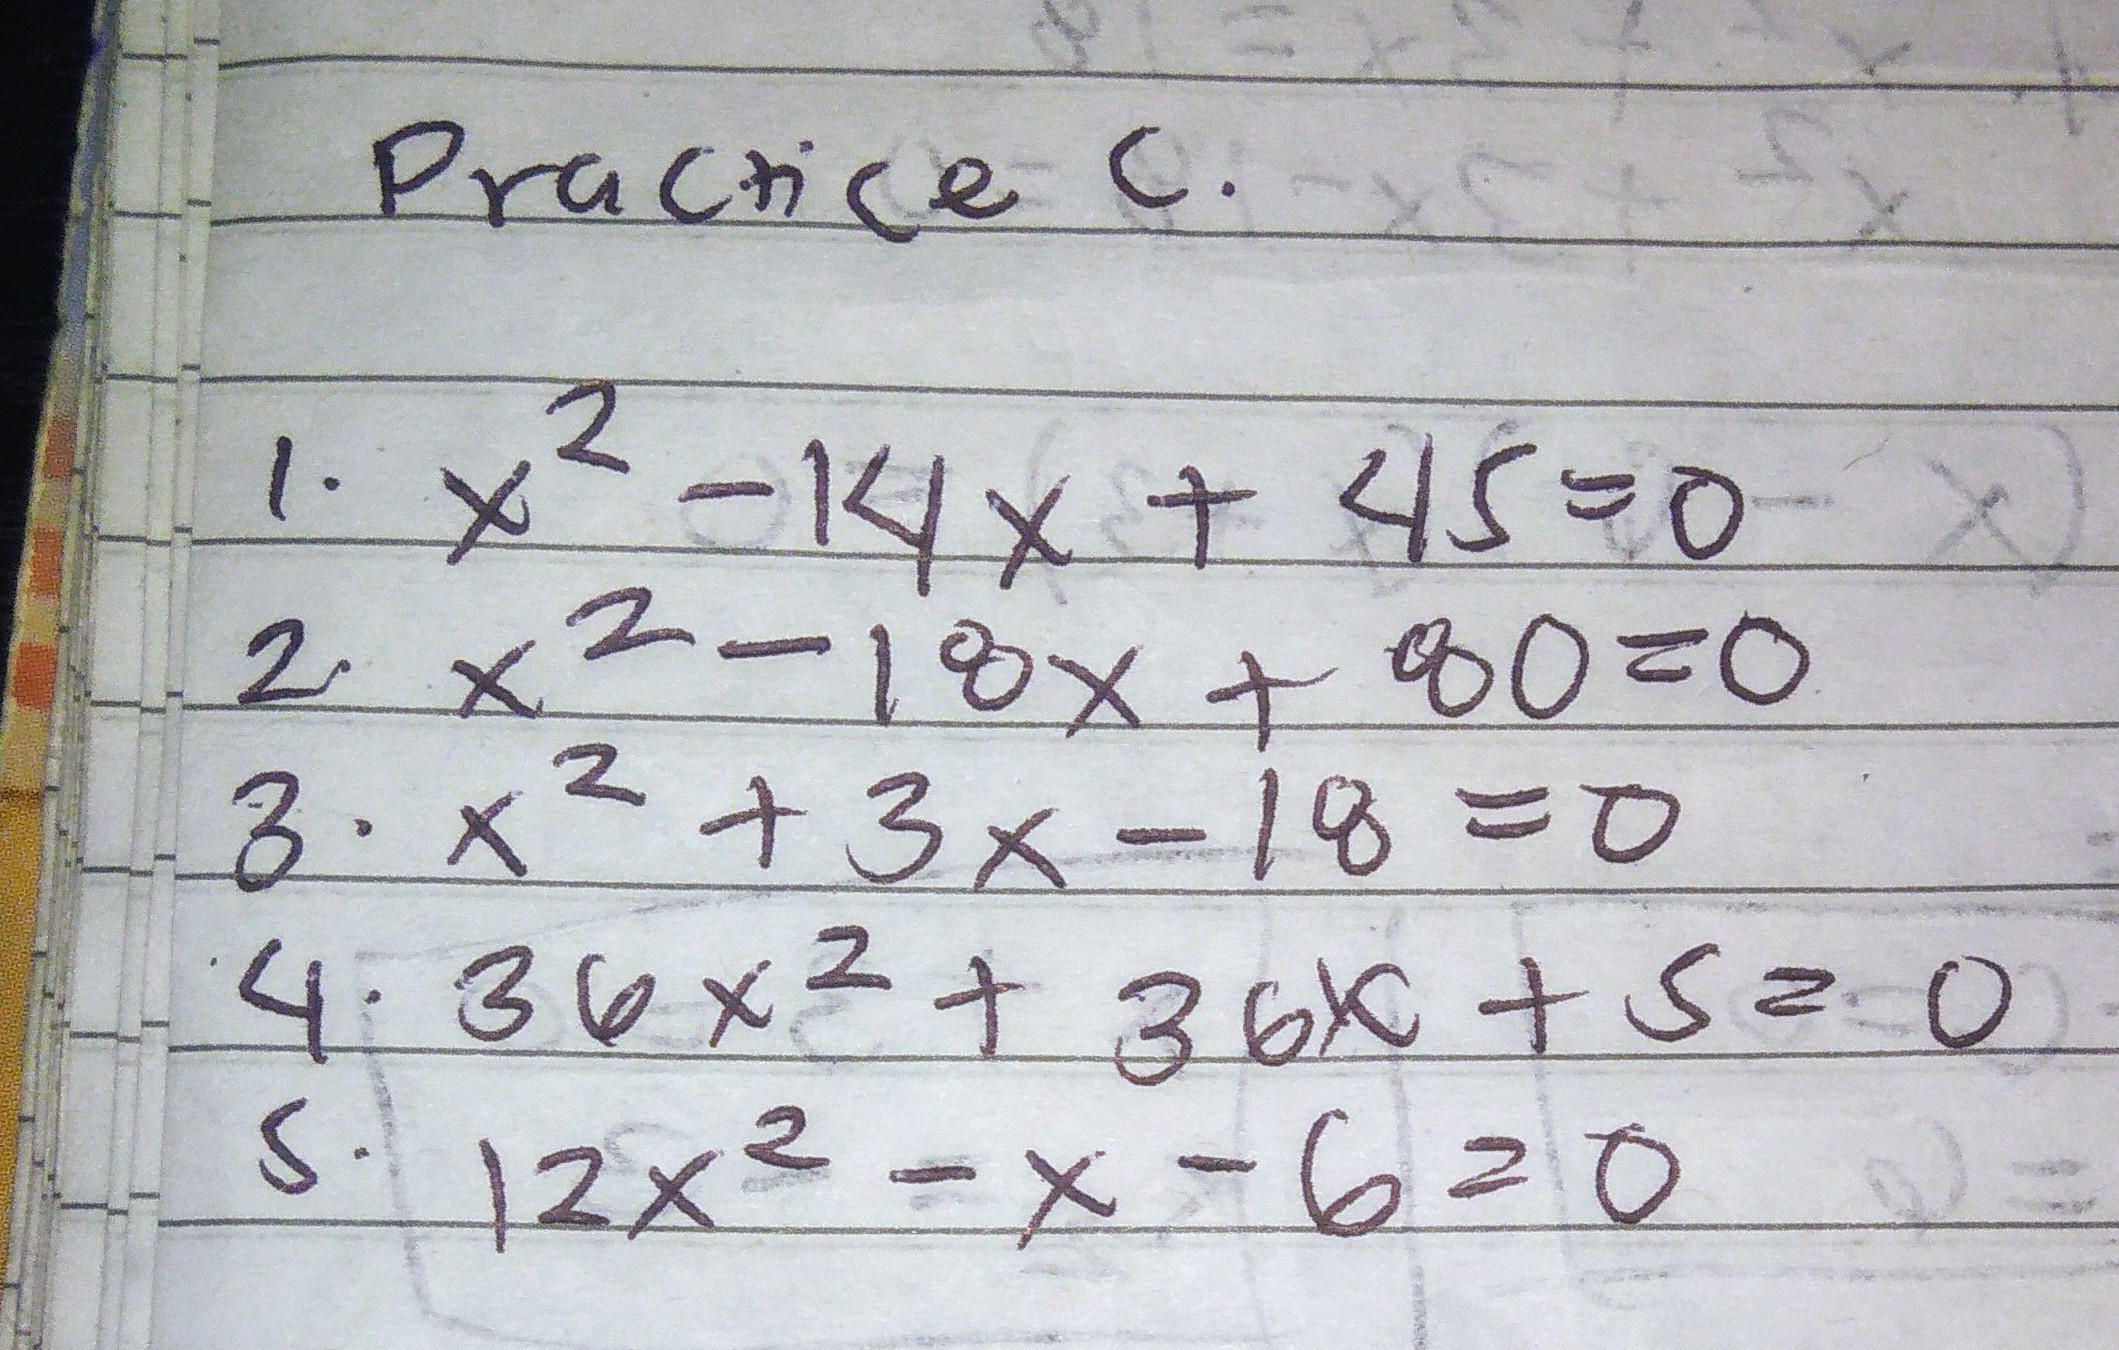 Practice C.
1. x² - 14x + 45 = 0
2. x² - 18x + 80 = 0
3. x² + 3x - 18 = 0
4. 36x² + 36x + 5 = 0
5. 12x² - x - 6 = 0